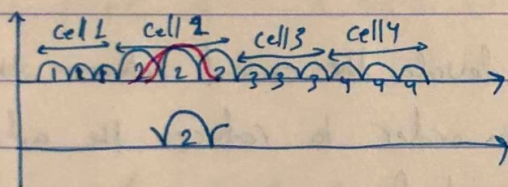 cell 1 cell 2 cell 3 cell 4
1 1 1 2 2 2 3 3 3 4 4 4
2